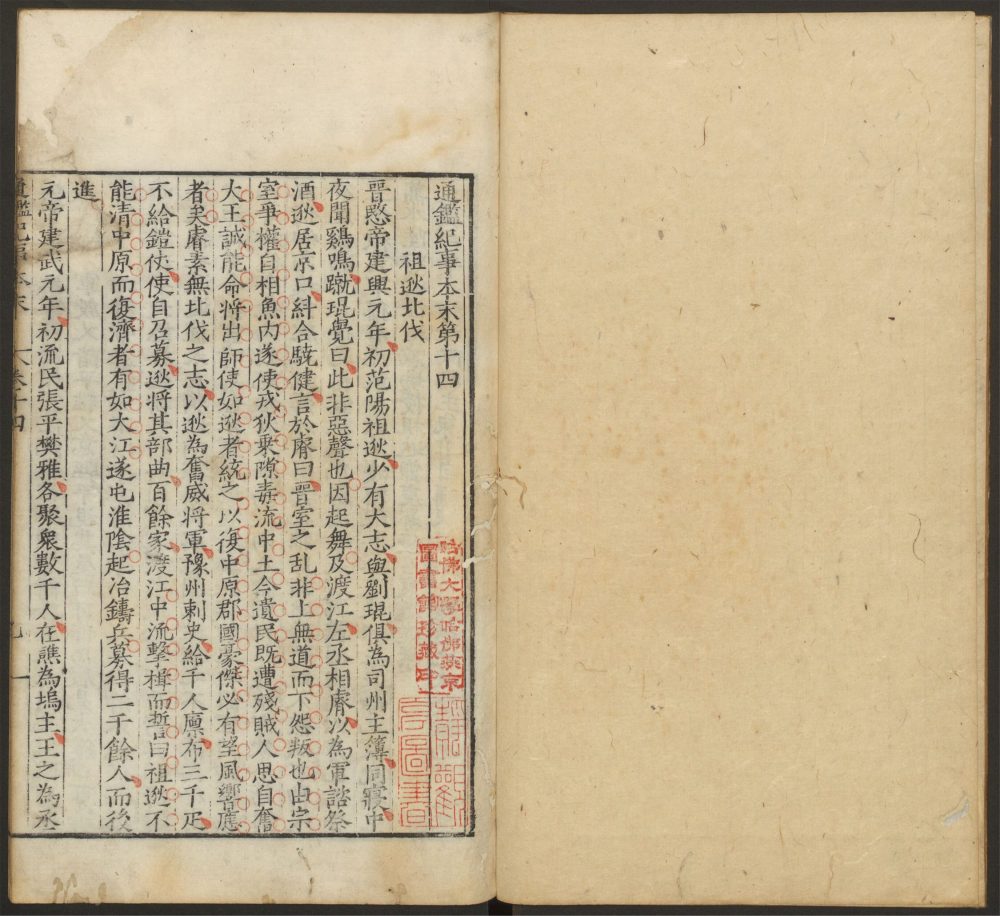 通鑑紀事本末第十四
祖逖北伐
晉愍帝建興元年初范陽祖逖少有大志與劉琨俱為司州主簿同寢中
夜聞鷄鳴蹴琨覺曰此非惡聲也因起舞及渡江左丞相睿以為軍諮祭
酒逖居京口糾合驍健言於睿曰晉室之乱非上無道而下怨叛也由宗
室爭權自相魚肉遂使戎狄乗隙毒流中土今遺民既遭殘賊人思自奮
大王誠能命将出師使如逖者統之以復中原郡國豪傑必有望風響應
者矣睿素無北伐之志以逖為奮威将軍豫州刺史給千人廪布三千疋
不給鎧仗使自召募逖将其部曲百餘家渡江中流擊楫而誓曰祖逖不
能清中原而復濟者有如大江遂屯淮陰起冶鑄兵募得二千餘人而後
進
元帝建武元年初流民張平樊雅各聚衆數千人在譙為塢主王之為丞
通鑑紀事本末 卷十四 一
哈佛大學哈佛燕京
圖書館珍藏印